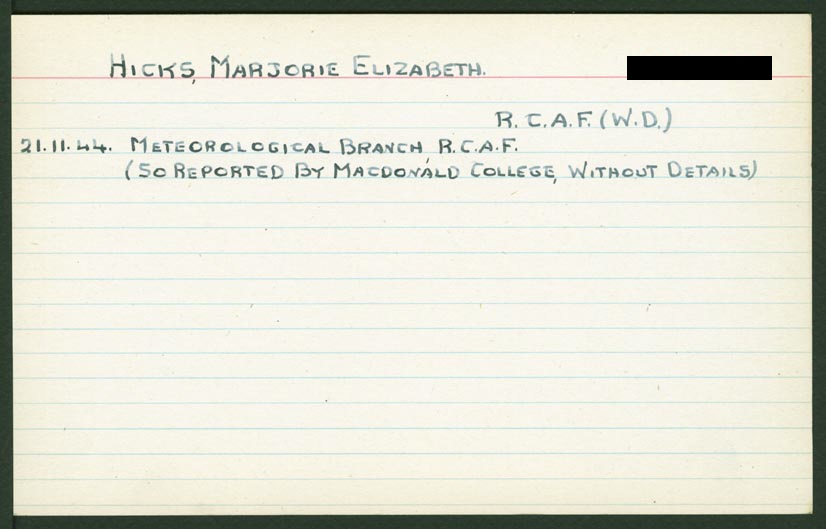 HICKS, MARJORIE ELIZABETH.
R.C.A.F. (W.D.)
21.11.44. METEOROLOGICAL BRANCH, R.C.A.F.
(SO REPORTED BY MACDONALD COLLEGE, WITHOUT DETAILS)